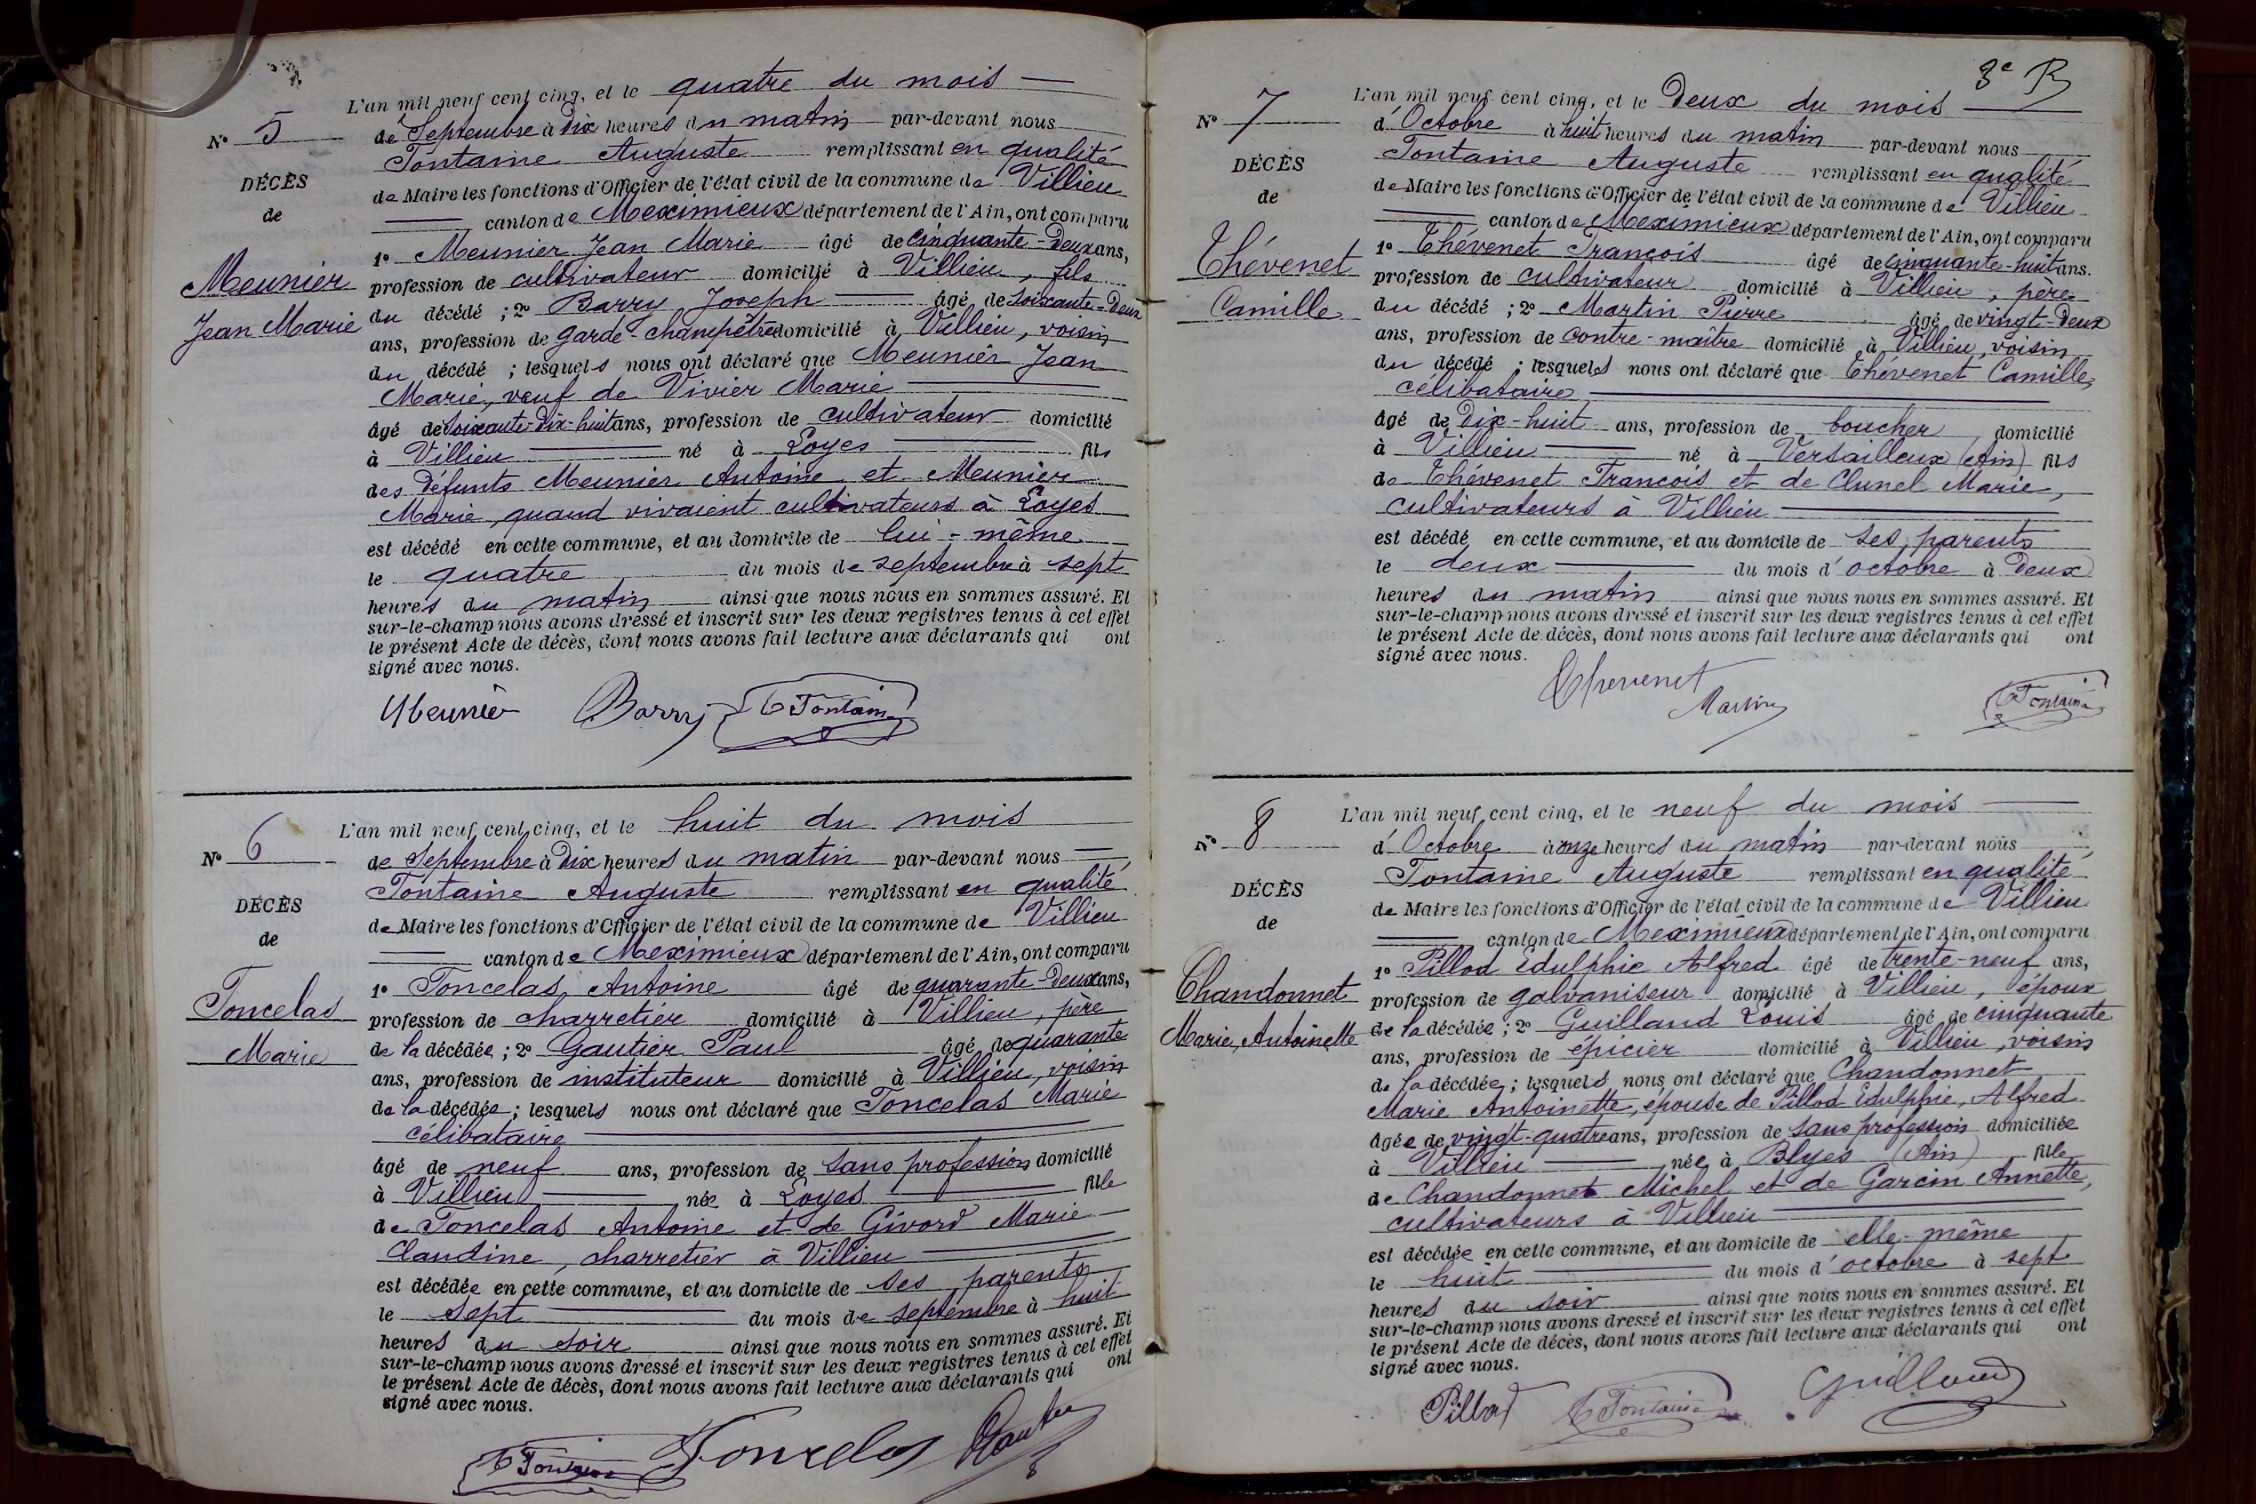 L'an mil neuf cent cinq, et le quatre du mois
N° 5
de Septembre à Dix heures du matin par-devant nous
Fontaine Auguste remplissant en qualité
DÉCÈS
de Maire les fonctions d'Officier de l'état civil de la commune de Villieu
de
canton de Meximieux département de l'Ain, ont comparu
1° Meunier Jean Marie âgé de cinquante-Deux ans,
Meunier
profession de cultivateur domicilié à Villieu, fils
Jean Marie
du décédé ; 2° Barry Joseph âgé de soixante-Deux
ans, profession de garde-champêtre domicilié à Villieu, voisin
du décédé ; lesquels nous ont déclaré que Meunier Jean
Marie, veuf de Vivier Marie
âgé de soixante-dix-huit ans, profession de cultivateur domicilié
à Villieu né à Loyes fils
des défunts Meunier Antoine et Meunier
Marie, quand vivaient cultivateurs à Loyes
est décédé en cette commune, et au domicile de lui-même
le quatre du mois de septembre à sept
heures du matin ainsi que nous nous en sommes assuré. Et
sur-le-champ nous avons dressé et inscrit sur les deux registres tenus à cet effet
le présent Acte de décès, dont nous avons fait lecture aux déclarants qui ont
signé avec nous.
Meunier Barry Fontaine
L'an mil neuf cent cinq, et le huit du mois
N° 6
de Septembre à Dix heures du matin par-devant nous
Fontaine Auguste remplissant en qualité
DÉCÈS
de Maire les fonctions d'Officier de l'état civil de la commune de Villieu
de
canton de Meximieux département de l'Ain, ont comparu
1° Foncelas Antoine âgé de quarante-Deux ans,
Foncelas
profession de charretier domicilié à Villieu, père
Marie
de la décédée ; 2° Gautier Paul âgé de quarante
ans, profession de instituteur domicilié à Villieu, voisin
de la décédée ; lesquels nous ont déclaré que Foncelas Marie
célibataire
âgé de neuf ans, profession de sans profession domicilié
à Villieu née à Loyes fille
de Foncelas Antoine et de Givord Marie
Claudine, charretier à Villieu
est décédée en cette commune, et au domicile de ses parents
le sept du mois de septembre à huit
heures du soir ainsi que nous nous en sommes assuré. Et
sur-le-champ nous avons dressé et inscrit sur les deux registres tenus à cet effet
le présent Acte de décès, dont nous avons fait lecture aux déclarants qui ont
signé avec nous.
Fontaine Foncelas Gautier
3e R
L'an mil neuf cent cinq, et le Deux du mois
N° 7
d'Octobre à huit heures du matin par-devant nous
Fontaine Auguste remplissant en qualité
DÉCÈS
de Maire les fonctions d'Officier de l'état civil de la commune de Villieu
de
canton de Meximieux département de l'Ain, ont comparu
1° Thévenet François âgé de cinquante-huit ans.
Thévenet
profession de cultivateur domicilié à Villieu, père
Camille
du décédé ; 2° Martin Pierre âgé de vingt-Deux
ans, profession de contre-maître domicilié à Villieu, voisin
du décédé ; lesquels nous ont déclaré que Thévenet Camille,
célibataire
âgé de Dix-huit ans, profession de boucher domicilié
à Villieu né à Versailleux (Ain) fils
de Thévenet François et de Clunel Marie,
cultivateurs à Villieu
est décédé en cette commune, et au domicile de ses parents
le deux du mois d'octobre à Deux
heures du matin ainsi que nous nous en sommes assuré. Et
sur-le-champ nous avons dressé et inscrit sur les deux registres tenus à cet effet
le présent Acte de décès, dont nous avons fait lecture aux déclarants qui ont
signé avec nous.
Thevenet Martin Fontaine
L'an mil neuf cent cinq, et le neuf du mois
N° 8
d'Octobre à onze heures du matin par-devant nous
Fontaine Auguste remplissant en qualité
DÉCÈS
de Maire les fonctions d'Officier de l'état civil de la commune de Villieu
de
canton de Meximieux département de l'Ain, ont comparu
1° Pillod Edulphie Alfred âgé de trente-neuf ans,
Chandonnet
profession de galvaniseur domicilié à Villieu, époux
Marie, Antoinette
de la décédée ; 2° Guilland Louis âgé de cinquante
ans, profession de épicier domicilié à Villieu, voisin
de la décédée ; lesquels nous ont déclaré que Chandonnet
Marie Antoinette, épouse de Pillod Edulphie, Alfred
âgée de vingt-quatre ans, profession de sans profession domiciliée
à Villieu née à Blyes (Ain) fille
de Chandonnet Michel et de Garcin Annette,
cultivateurs à Villieu
est décédée en cette commune, et au domicile de elle-même
le huit du mois d'octobre à sept
heures du soir ainsi que nous nous en sommes assuré. Et
sur-le-champ nous avons dressé et inscrit sur les deux registres tenus à cet effet
le présent Acte de décès, dont nous avons fait lecture aux déclarants qui ont
signé avec nous.
Pillod Fontaine Guilland